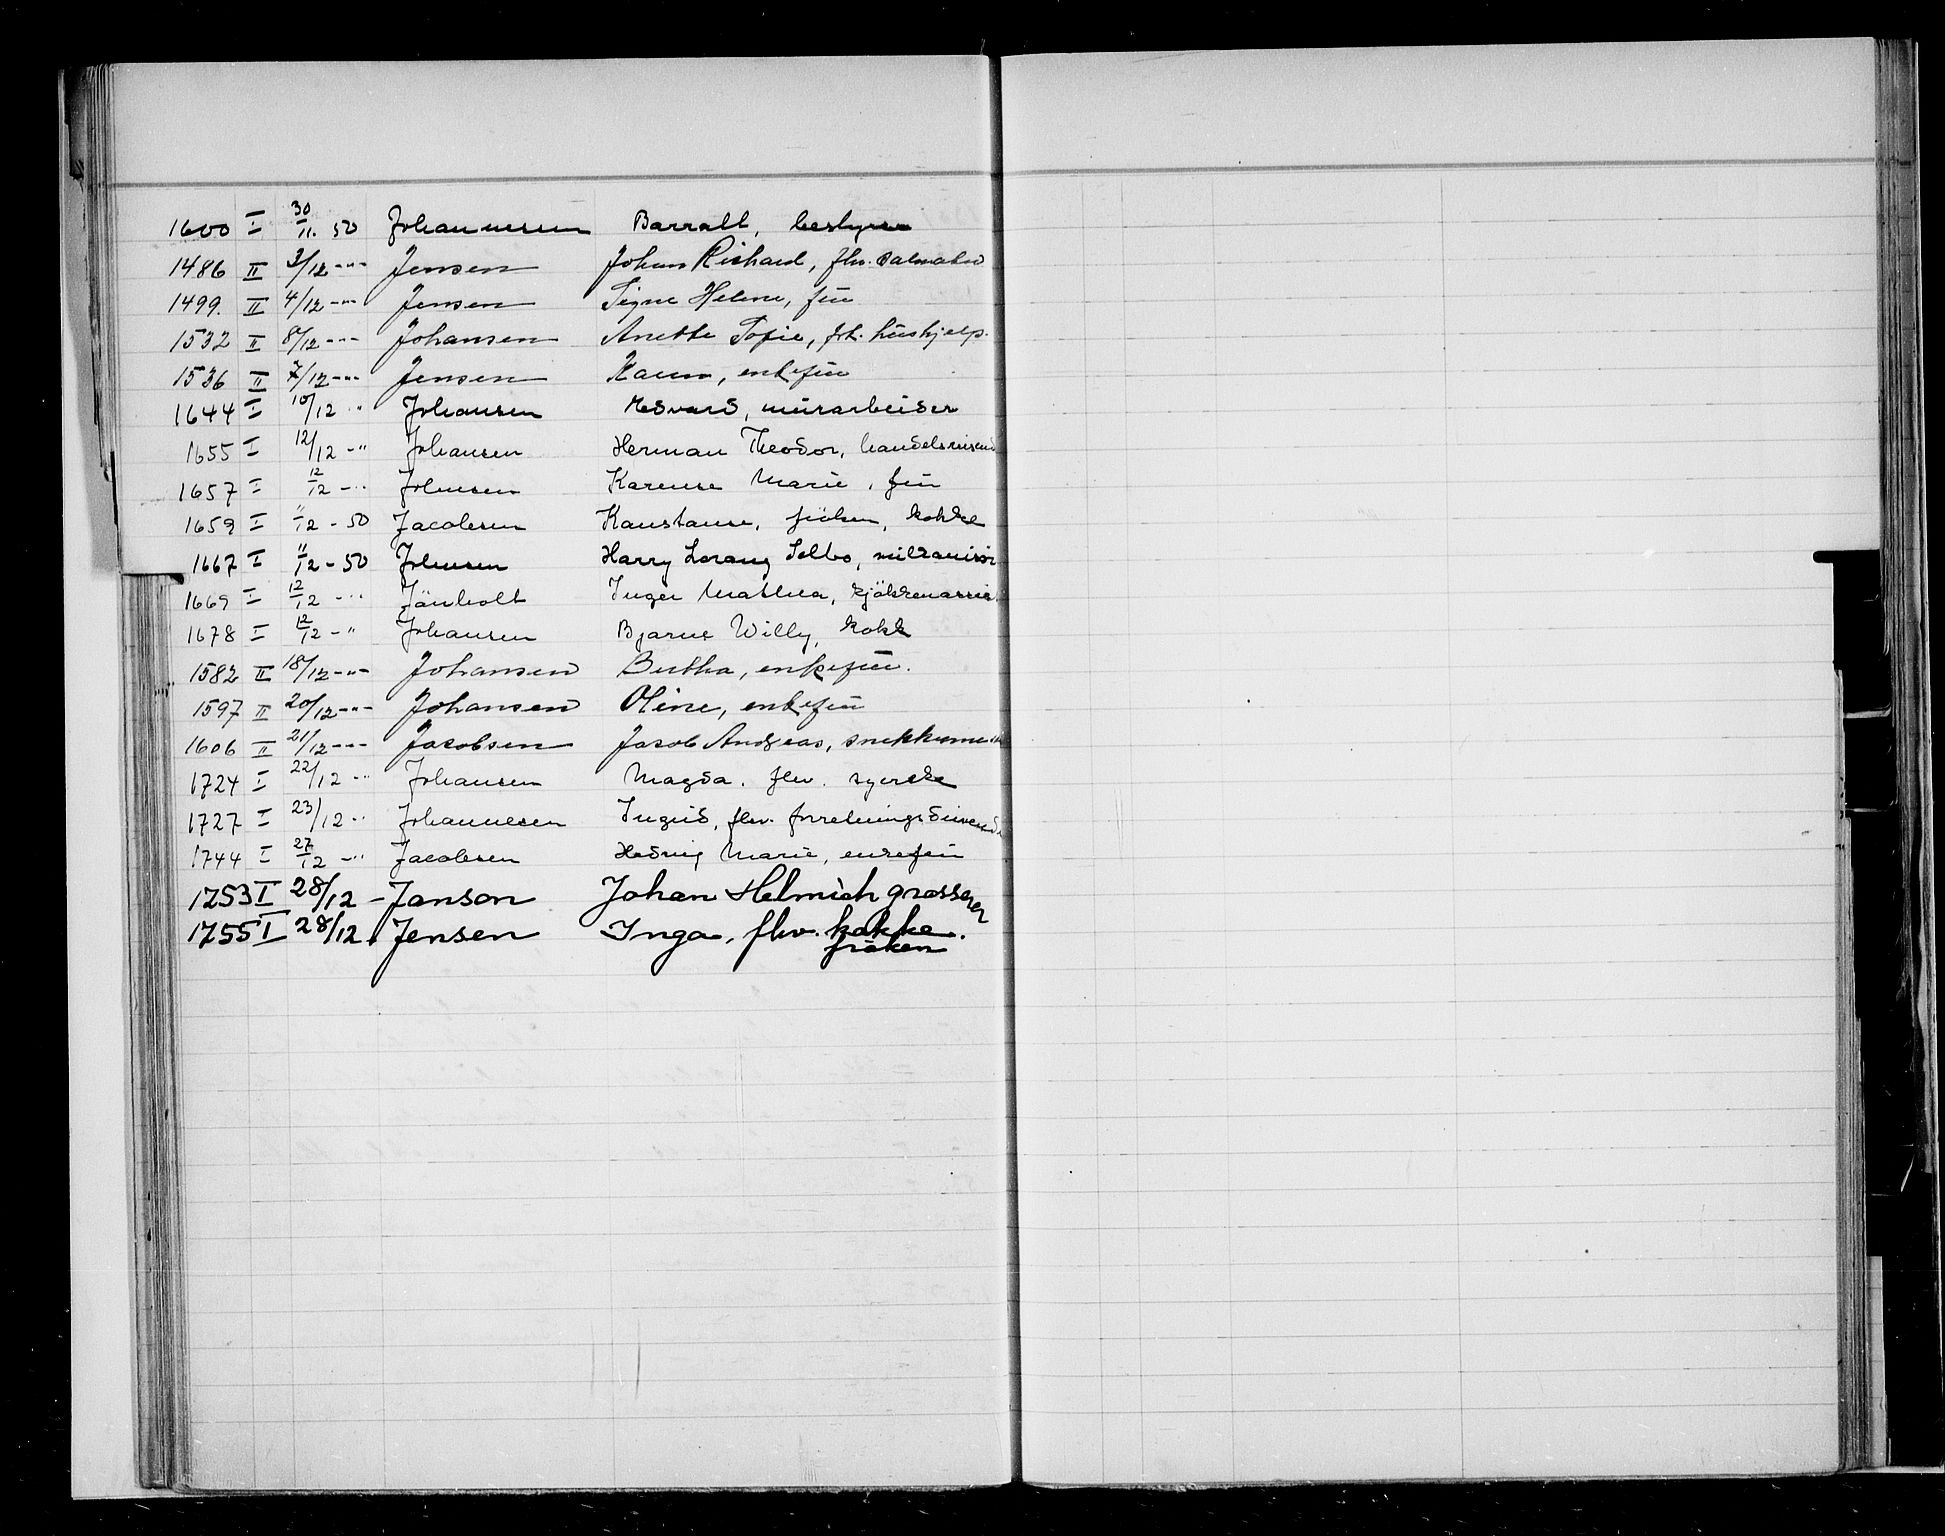 1600 I 30/11. 50 Johannessen Barrall, bestyrer
1486 II 3/12 -"- Jensen Johan Richard, fhv. salmaker
1499. II 4/12 -"- Jensen Signe Helene, frü
1532 II 8/12 -"- Johansen Anette Sofie, frk. hüshjelp.
1536 II 7/12 -"- Jensen Karen, enkefrü
1644 I 10/12 " Johansen Edvard, mürarbeider
1655 I 12/12 -" Johansen Herman Theodor, handelsreisend
1657 I 12/12 -" Johnsen Karense Marie, frü
1659 I 11/12 - 50 Jacobsen Konstanse, fröken, kokke
1667 I 11/12 - 50 Johnsen Harry Lorang Selbo,
1669 I 12/12 -" Inger Mathea, kjökkenassis
1678 I 12/12 -" Johansen Bjarne Willy, kokk
1582 II 18/12 -"- Johansen Bertha, enkefrü.
1597 II 20/12 -"- Johansen Oline, enkefrü
1606 II 21/12 -"- Jacobsen Jacob Andreas, snekkerme
1724 I 22/12 -" Johansen Magda. fhv. syerske
1727 I 23/12 -" Johannesen Ingrid, fhv. forretningsdrivende
1744 I 27/12 -" Jacobsen Hedvig Marie, enkefrü
1753 I 28/12 - Janson Johan Helmich grosserer
1755 I 28/12. Jensen Inga, fhv. kokke.
fröken